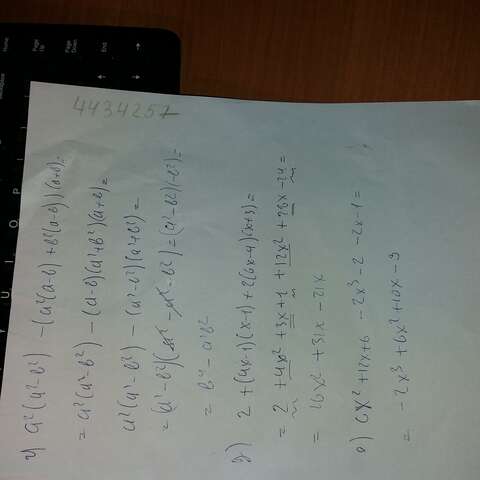 4434257
г) a²(a²-b²) - (a²(a-b) + b²(a-b))(a+b)=
= a²(a²-b²) - (a-b)(a²+b²)(a+b)=
a²(a²-b²) - (a²-b²)(a²+b²)=
= (a²-b²)(a² - a² - b²) = (a²-b²)(-b²)=
= b⁴ - a²b²
g) 2 + (4x-1)(x-1) + 2(6x-4)(x+3)=
= 2 + 4x² + 3x + 1 + 12x² + 28x - 24 =
= 16x² + 31x - 21x
e) 6x² + 12x + 6 - 2x³ - 2 - 2x - 1 =
= -2x³ + 6x² + 10x - 9